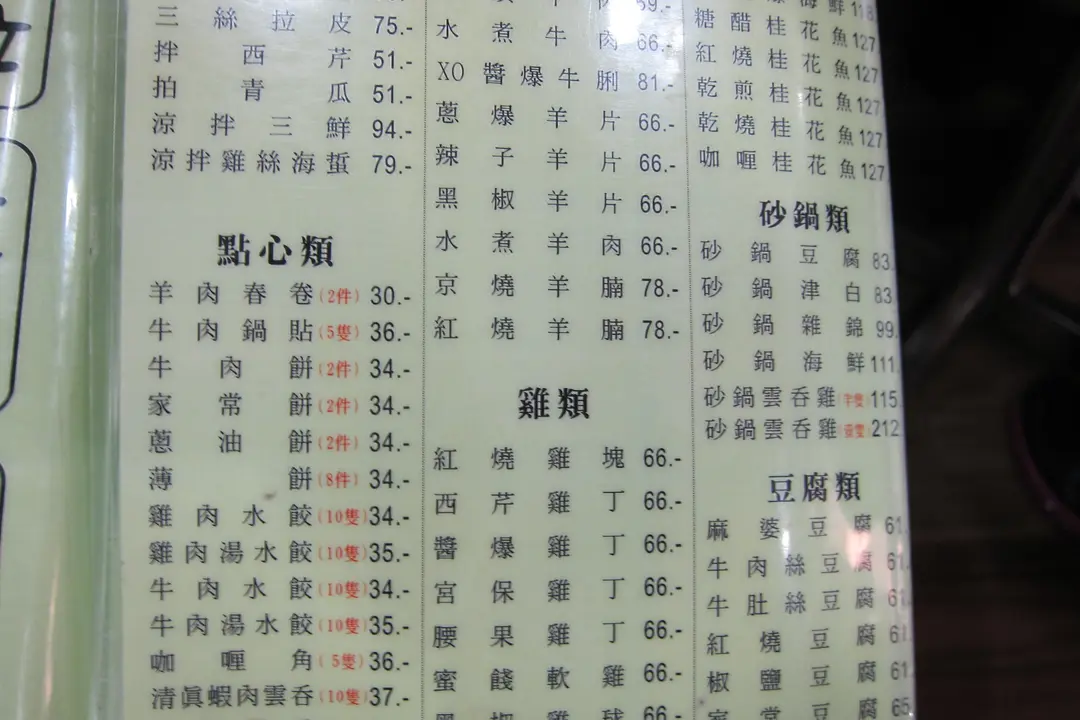 三絲拉皮 75.-
拌西芹 51.-
拍青瓜 51.-
涼拌三鮮 94.-
涼拌雞絲海蜇 79.-
點心類
羊肉春卷(2件) 30.-
牛肉鍋貼(5隻) 36.-
牛肉餅(2件) 34.-
家常餅(2件) 34.-
蔥油餅(2件) 34.-
薄餅(8件) 34.-
雞肉水餃(10隻) 34.-
雞肉湯水餃(10隻) 35.-
牛肉水餃(10隻) 34.-
牛肉湯水餃(10隻) 35.-
咖喱角(5隻) 36.-
清眞蝦肉雲吞(10隻) 37.-
水煮牛肉 66.-
XO醬爆牛脷 81.-
蔥爆羊片 66.-
辣子羊片 66.-
黑椒羊片 66.-
水煮羊肉 66.-
京燒羊腩 78.-
紅燒羊腩 78.-
雞類
紅燒雞塊 66.-
西芹雞丁 66.-
醬爆雞丁 66.-
宮保雞丁 66.-
腰果雞丁 66.-
蜜餞軟雞 66.-
海鮮 118
糖醋桂花魚 127
紅燒桂花魚 127
乾煎桂花魚 127
乾燒桂花魚 127
咖喱桂花魚 127
砂鍋類
砂鍋豆腐 83
砂鍋津白 83
砂鍋雜錦 99
砂鍋海鮮 111
砂鍋雲吞雞 115
砂鍋雲吞雞 212
豆腐類
麻婆豆腐 61
牛肉絲豆腐 61
牛肚絲豆腐
紅燒豆腐
椒鹽豆腐 61